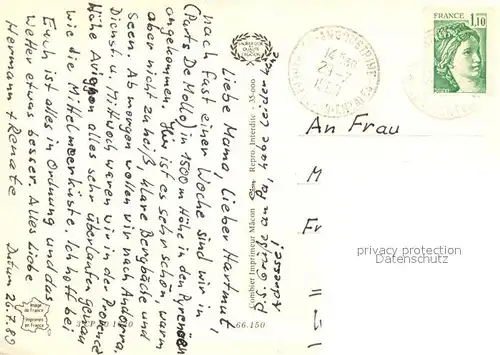 Liebe Mama, Lieber Hartmut,
nach fast einer Woche sind wir in
(Prats De Mollo) in 1500m Höhe in den Pyrenäen
angekommen. Hier ist es sehr schön, warm
aber nicht zu heiß, klare Bergbäche und
Seen. Ab morgen wollen wir nach Andorra.
Dienst. u. Mittwoch waren wir in der Provence
Höhe Avignon alles sehr überlaufen genau
wie die Mittelmeerküste. Ich hoff bei
Euch ist alles in Ordnung und das
Wetter etwas besser. Alles Liebe
Hermann + Renate
Datum 26.7.80
PS Grüße an
habe keine
Adresse!
Combier Imprimeur Mâcon
Repro. Interdite
35-000
66.150
image
de France
imprimée
en France
FRANCE
1,10
POSTES
An Frau
M
Fr
privacy protection
Datenschutz